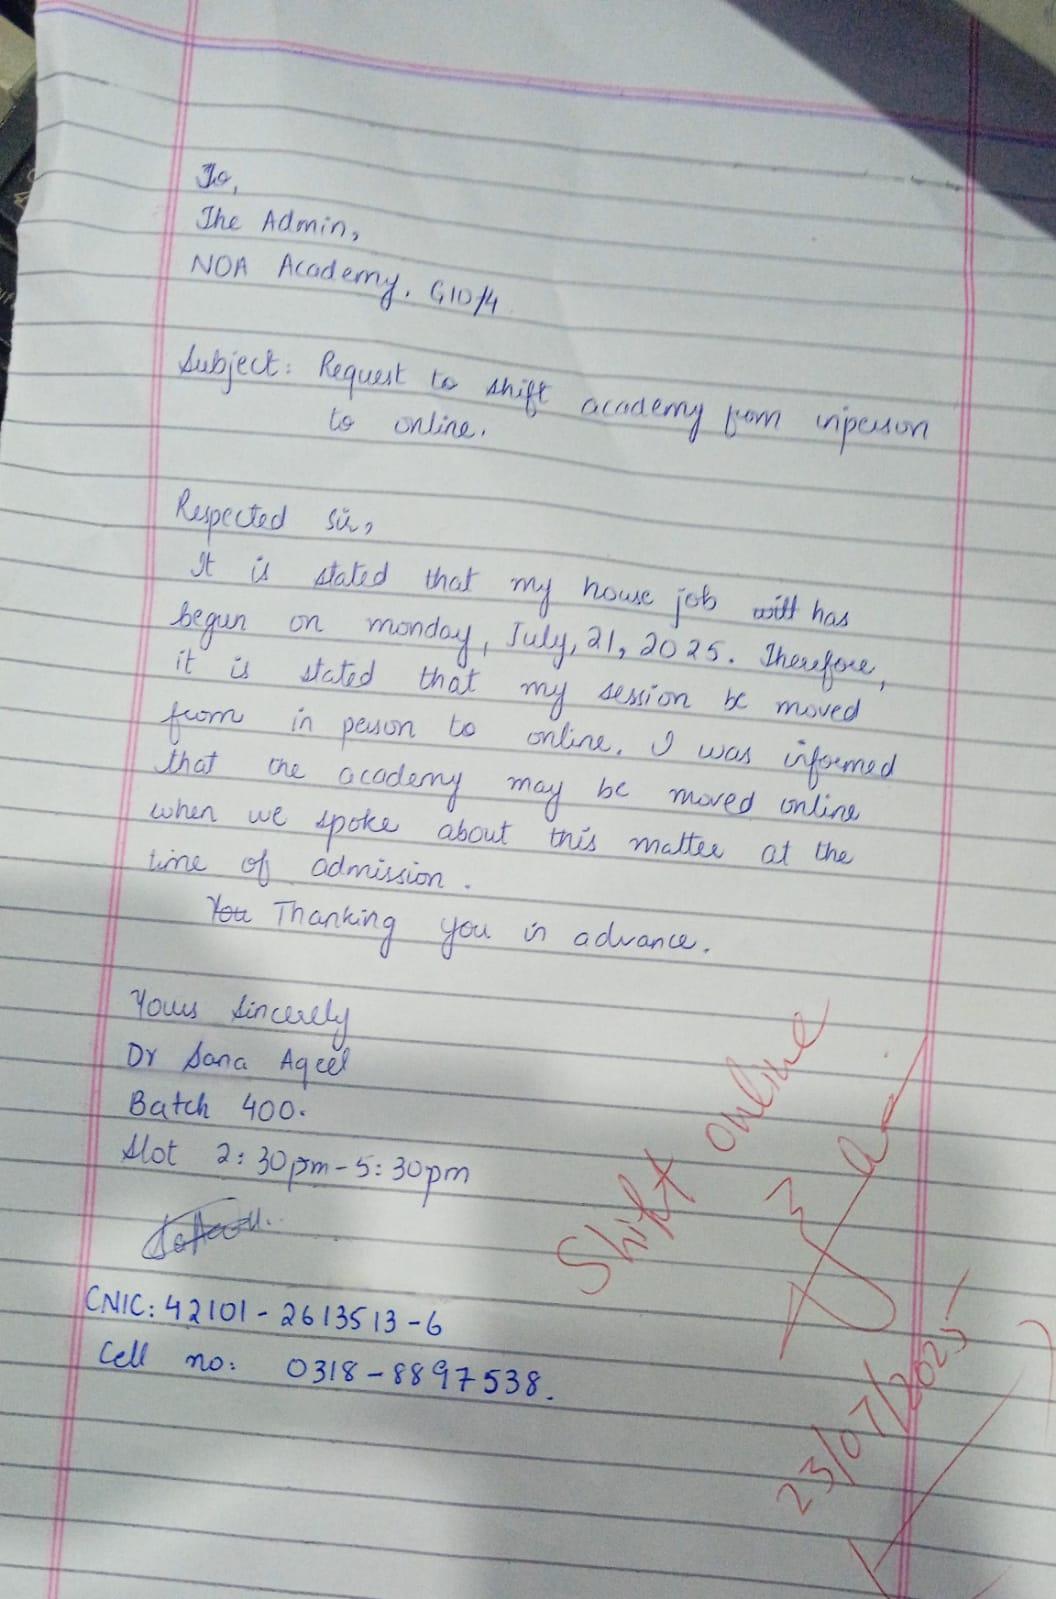 To,
The Admin,
NOA Academy. G10/4
Subject: Request to shift academy from inperson
to online.
Respected Sir,
It is stated that my house job will has
begun on monday, July, 21, 2025. Therefore,
it is stated that my session be moved
from in person to online. I was informed
that the academy may be moved online
when we spoke about this matter at the
time of admission.
You Thanking you in advance.
Yours Sincerely
Dr Sana Aqeel
Batch 400.
Slot 2:30pm-5:30pm
CNIC: 42101-2613513-6
Cell no: 0318-8897538.
Shift online
23/07/2025